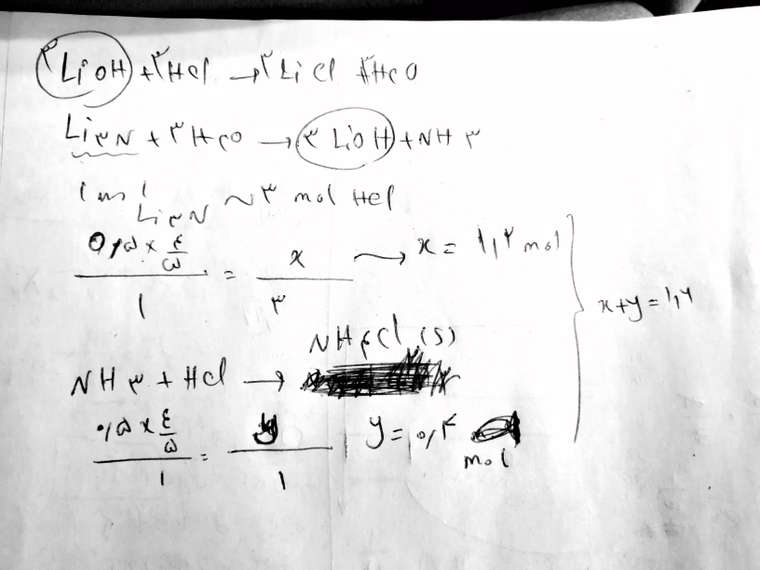 ۳LiOH + ۳HCl → ۳LiCl + ۳H۲O
Li۳N + ۳H۲O → ۳LiOH + NH۳
۱ mol Li۳N ~ ۳ mol HCl
۰٫۵ × ۴/۵ / ۱ = x / ۳ → x = ۱٫۲ mol
x+y = ۱٫۶
NH۳ + HCl → NH۴Cl (s)
۰٫۵ × ۴/۵ / ۱ = y / ۱ y = ۰٫۴ mol